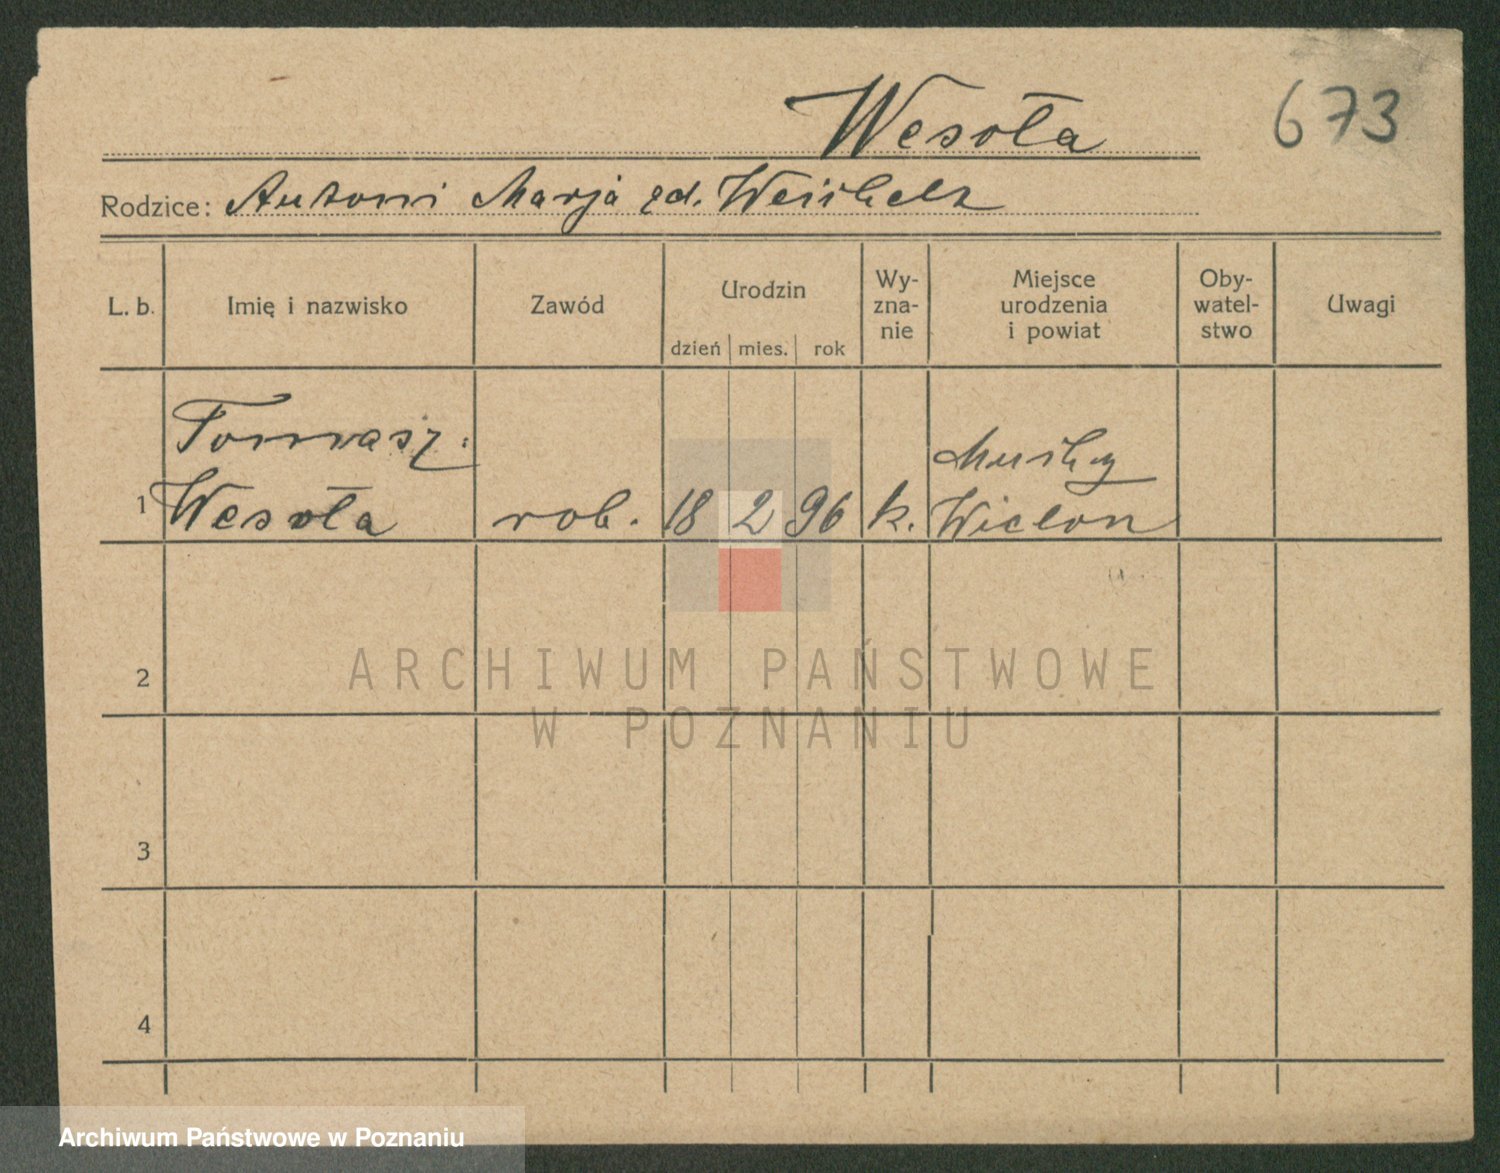 Wesoła 673
Rodzice: Antoni Marja zd.
L. b. Imię i nazwisko Zawód Urodzin dzień mies. rok Wy-zna-nie Miejsce urodzenia i powiat Oby-watel-stwo Uwagi
Tomasz
1 Wesoła rob. 18 2 96 k. Wielun
2
ARCHIWUM PAŃSTWOWE
W POZNANIU
3
4
Archiwum Państwowe w Poznaniu